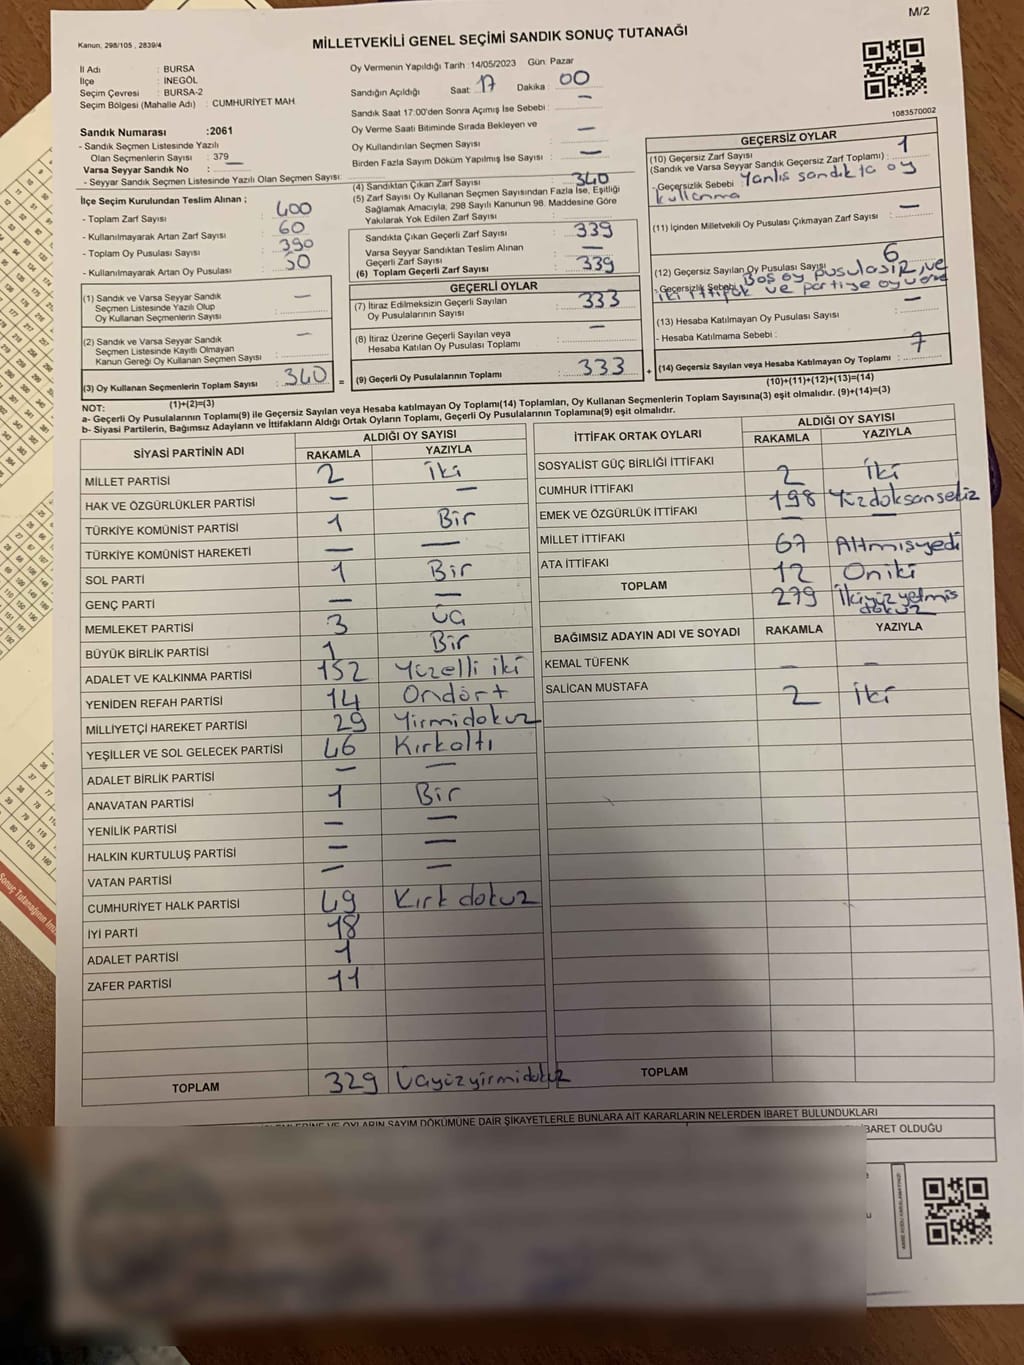 M/2
Kanun, 298/105 , 2839/4
MİLLETVEKİLİ GENEL SEÇİMİ SANDIK SONUÇ TUTANAĞI
İl Adı : BURSA
İlçe : İNEGÖL
Seçim Çevresi : BURSA-2
Seçim Bölgesi (Mahalle Adı) : CUMHURİYET MAH.
Sandık Numarası :2061
- Sandık Seçmen Listesinde Yazılı
Olan Seçmenlerin Sayısı : 379
Varsa Seyyar Sandık No : —
- Seyyar Sandık Seçmen Listesinde Yazılı Olan Seçmen Sayısı:
İlçe Seçim Kurulundan Teslim Alınan ;
- Toplam Zarf Sayısı : 400
- Kullanılmayarak Artan Zarf Sayısı : 60
- Toplam Oy Pusulası Sayısı : 390
- Kullanılmayarak Artan Oy Pusulası : 50
(1) Sandık ve Varsa Seyyar Sandık
Seçmen Listesinde Yazılı Olup
Oy Kullanan Seçmenlerin Sayısı : —
(2) Sandık ve Varsa Seyyar Sandık
Seçmen Listesinde Kayıtlı Olmayan
Kanun Gereği Oy Kullanan Seçmen Sayısı : —
(3) Oy Kullanan Seçmenlerin Toplam Sayısı : 340 =
(1)+(2)=(3)
Oy Vermenin Yapıldığı Tarih :14/05/2023 Gün: Pazar
Sandığın Açıldığı Saat: 17 Dakika : 00
Sandık Saat 17:00'den Sonra Açımış İse Sebebi : —
Oy Verme Saati Bitiminde Sırada Bekleyen ve
Oy Kullandırılan Seçmen Sayısı : —
Birden Fazla Sayım Döküm Yapılmış İse Sayısı : —
(4) Sandıktan Çıkan Zarf Sayısı : 340
(5) Zarf Sayısı Oy Kullanan Seçmen Sayısından Fazla İse, Eşitliği
Sağlamak Amacıyla, 298 Sayılı Kanunun 98. Maddesine Göre
Yakılarak Yok Edilen Zarf Sayısı :
Sandıkta Çıkan Geçerli Zarf Sayısı : 339
Varsa Seyyar Sandıktan Teslim Alınan
Geçerli Zarf Sayısı : —
(6) Toplam Geçerli Zarf Sayısı : 339
GEÇERLİ OYLAR
(7) İtiraz Edilmeksizin Geçerli Sayılan
Oy Pusulalarının Sayısı : 333
(8) İtiraz Üzerine Geçerli Sayılan veya
Hesaba Katılan Oy Pusulası Toplamı : —
(9) Geçerli Oy Pusulalarının Toplamı : 333 +
1083570002
GEÇERSİZ OYLAR
(10) Geçersiz Zarf Sayısı
(Sandık ve Varsa Seyyar Sandık Geçersiz Zarf Toplamı) : 1
-Geçersizlik Sebebi : Yanlıs sandıkta oy
kullanma
(11) İçinden Milletvekili Oy Pusulası Çıkmayan Zarf Sayısı : —
(12) Geçersiz Sayılan Oy Pusulası Sayısı : 6
- Geçersizlik Sebebi : Boş oy pusulası ve
iki ittifak ve partiye oy
(13) Hesaba Katılmayan Oy Pusulası Sayısı : —
- Hesaba Katılmama Sebebi :
(14) Geçersiz Sayılan veya Hesaba Katılmayan Oy Toplamı : 7
(10)+(11)+(12)+(13)=(14)
NOT:
a- Geçerli Oy Pusulalarının Toplamı(9) ile Geçersiz Sayılan veya Hesaba katılmayan Oy Toplamı(14) Toplamları, Oy Kullanan Seçmenlerin Toplam Sayısına(3) eşit olmalıdır. (9)+(14)=(3)
b- Siyasi Partilerin, Bağımsız Adayların ve İttifakların Aldığı Ortak Oyların Toplamı, Geçerli Oy Pusulalarının Toplamına(9) eşit olmalıdır.
SİYASİ PARTİNİN ADI ALDIĞI OY SAYISI
RAKAMLA YAZIYLA
MİLLET PARTİSİ 2 İki
HAK VE ÖZGÜRLÜKLER PARTİSİ — —
TÜRKİYE KOMÜNİST PARTİSİ 1 Bir
TÜRKİYE KOMÜNİST HAREKETİ — —
SOL PARTİ 1 Bir
GENÇ PARTİ — —
MEMLEKET PARTİSİ 3 Üç
BÜYÜK BİRLİK PARTİSİ 1 Bir
ADALET VE KALKINMA PARTİSİ 152 Yüzelli iki
YENİDEN REFAH PARTİSİ 14 Ondört
MİLLİYETÇİ HAREKET PARTİSİ 29 Yirmidokuz
YEŞİLLER VE SOL GELECEK PARTİSİ 46 Kırkaltı
ADALET BİRLİK PARTİSİ — —
ANAVATAN PARTİSİ 1 Bir
YENİLİK PARTİSİ — —
HALKIN KURTULUŞ PARTİSİ — —
VATAN PARTİSİ — —
CUMHURİYET HALK PARTİSİ 49 Kırk dokuz
İYİ PARTİ 18
ADALET PARTİSİ 1
ZAFER PARTİSİ 11
TOPLAM 329 Üçyüzyirmidokuz
İTTİFAK ORTAK OYLARI ALDIĞI OY SAYISI
RAKAMLA YAZIYLA
SOSYALİST GÜÇ BİRLİĞİ İTTİFAKI 2 İki
CUMHUR İTTİFAKI 198 Yüzdoksansekiz
EMEK VE ÖZGÜRLÜK İTTİFAKI — —
MİLLET İTTİFAKI 67 Altmısyedi
ATA İTTİFAKI 12 Oniki
TOPLAM 279 İkiyüzyetmis
dokuz
BAĞIMSIZ ADAYIN ADI VE SOYADI RAKAMLA YAZIYLA
KEMAL TÜFENK — —
SALİCAN MUSTAFA 2 İki
TOPLAM
VE OYLARIN SAYIM DÖKÜMÜNE DAİR ŞİKAYETLERLE BUNLARA AİT KARARLARIN NELERDEN İBARET BULUNDUKLARI
İBARET OLDUĞU